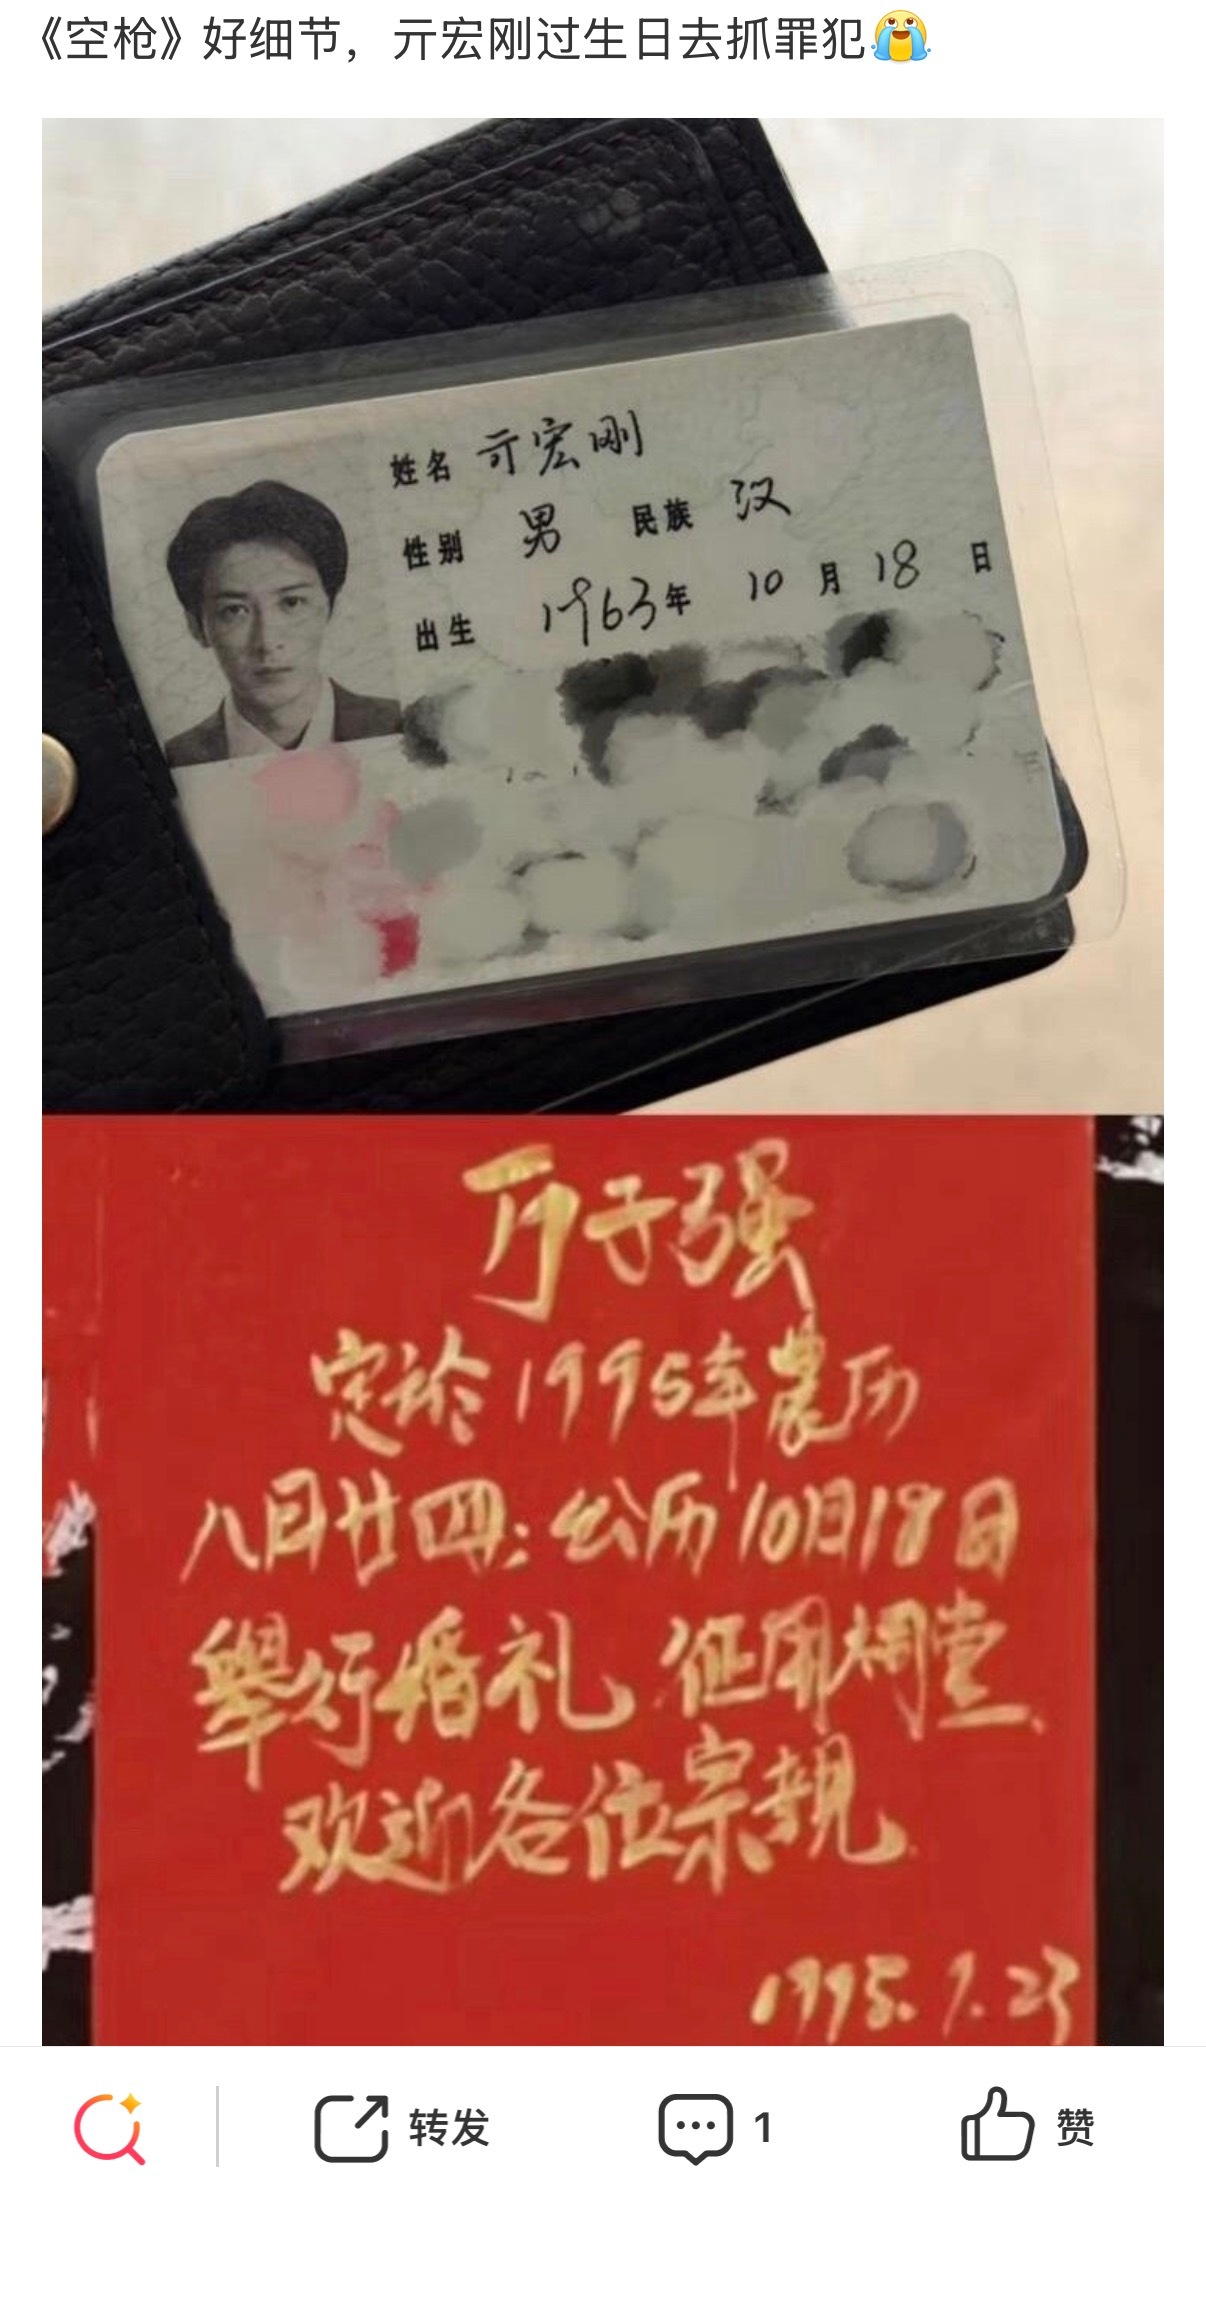 《空枪》好细节，亓宏刚过生日去抓罪犯😭
姓名 亓宏刚
性别 男 民族 汉
出生 1963年 10月18日
万子强
定於1995年农历
八月廿四;公历10月18日
举行婚礼 征用祠堂、
欢迎各位宗親.
1995.9.23
转发 1 赞